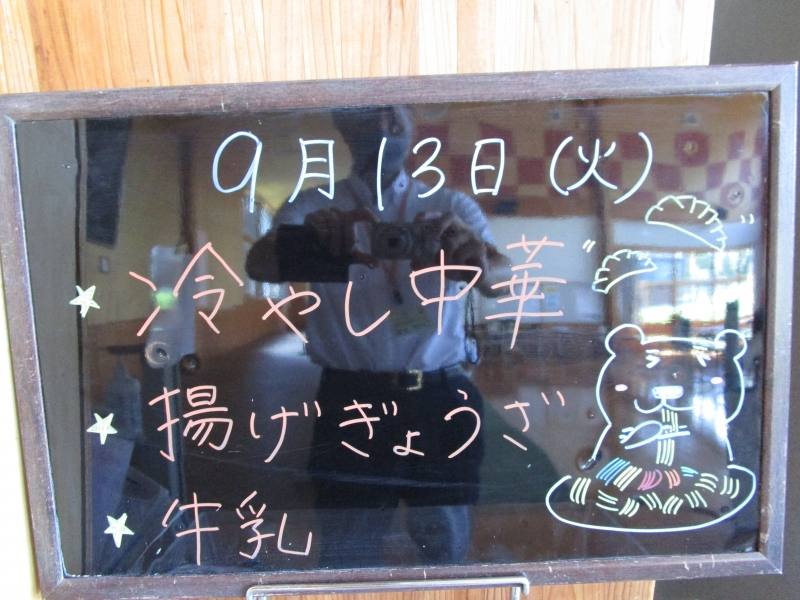 9月13日(火)
冷やし中華
揚げぎょうざ
牛乳